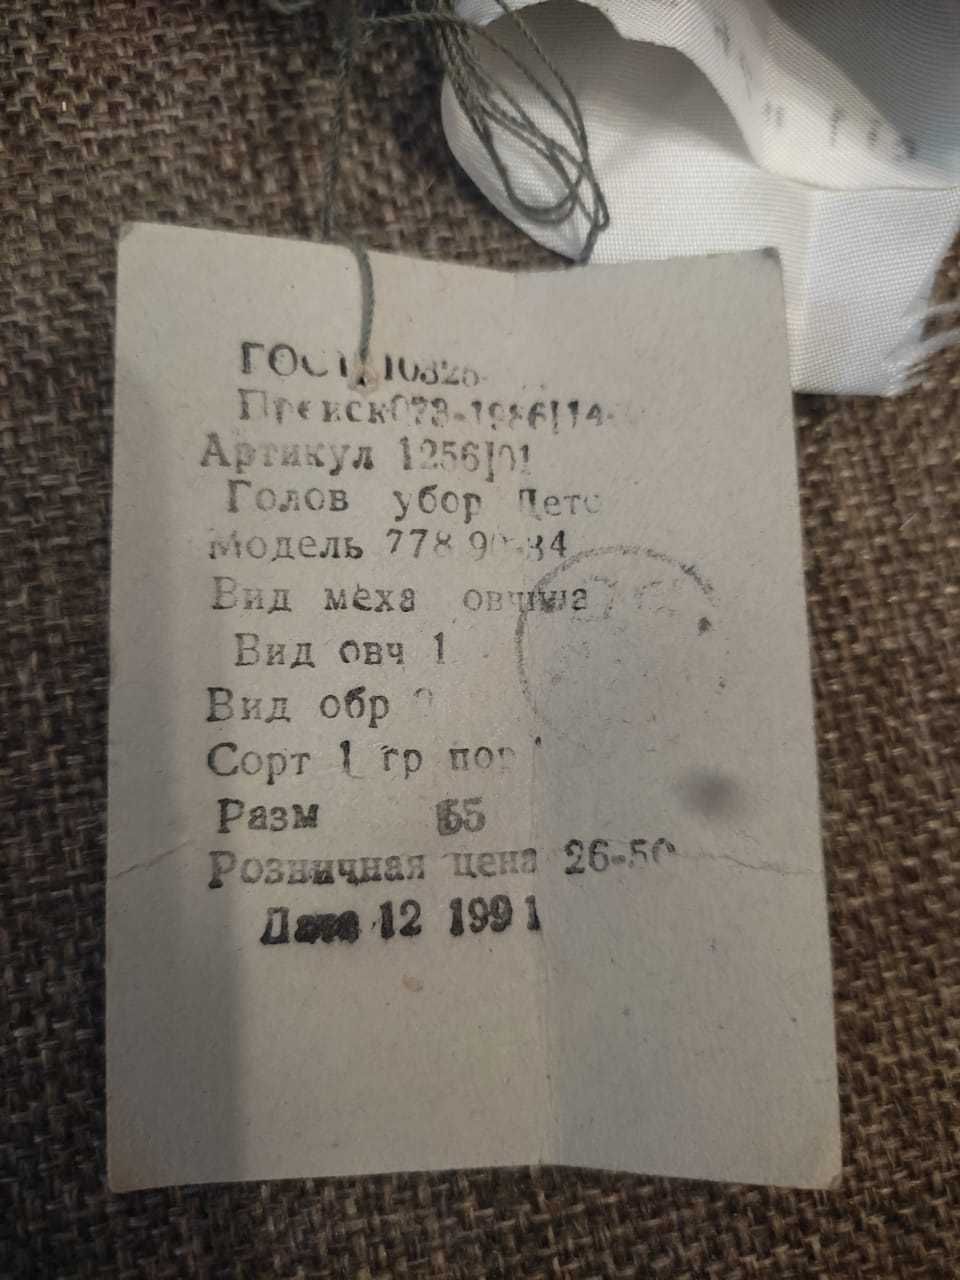 ГОСТ 10325-
Прейск 073-1986|14-
Артикул 1256|01
Голов убор Детс
Модель 778 90-84
Вид меха овчина
Вид овч 1
Вид обр
Сорт 1 гр пор 1
Разм 55
Розничная цена 26-50
Дата 12 1991